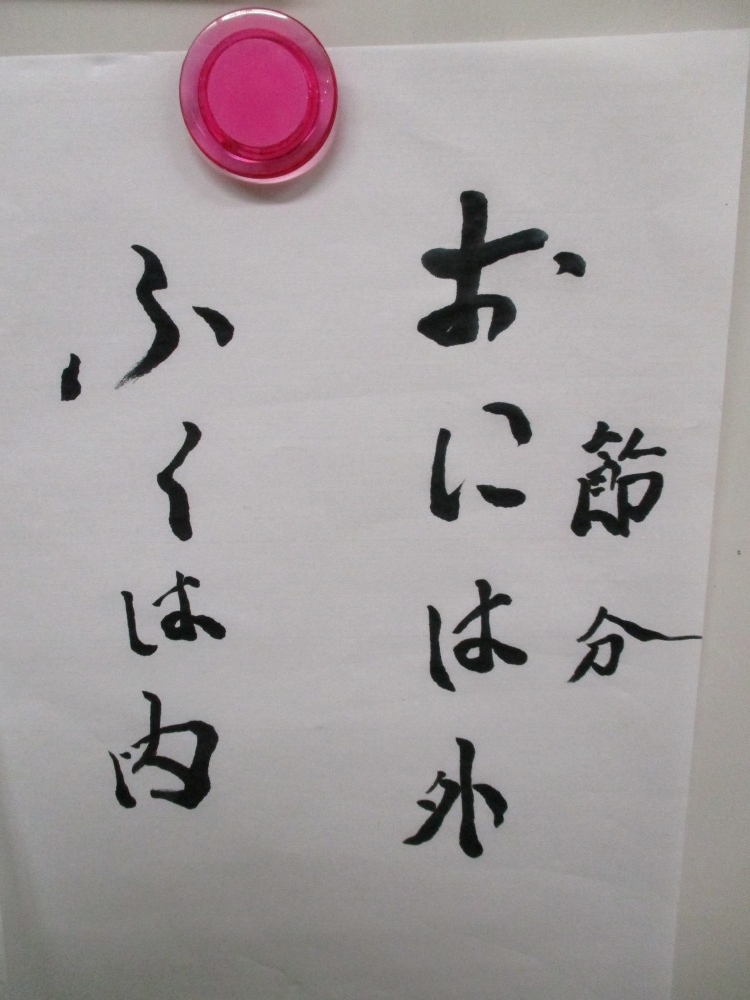 節分
おには外
ふくは内